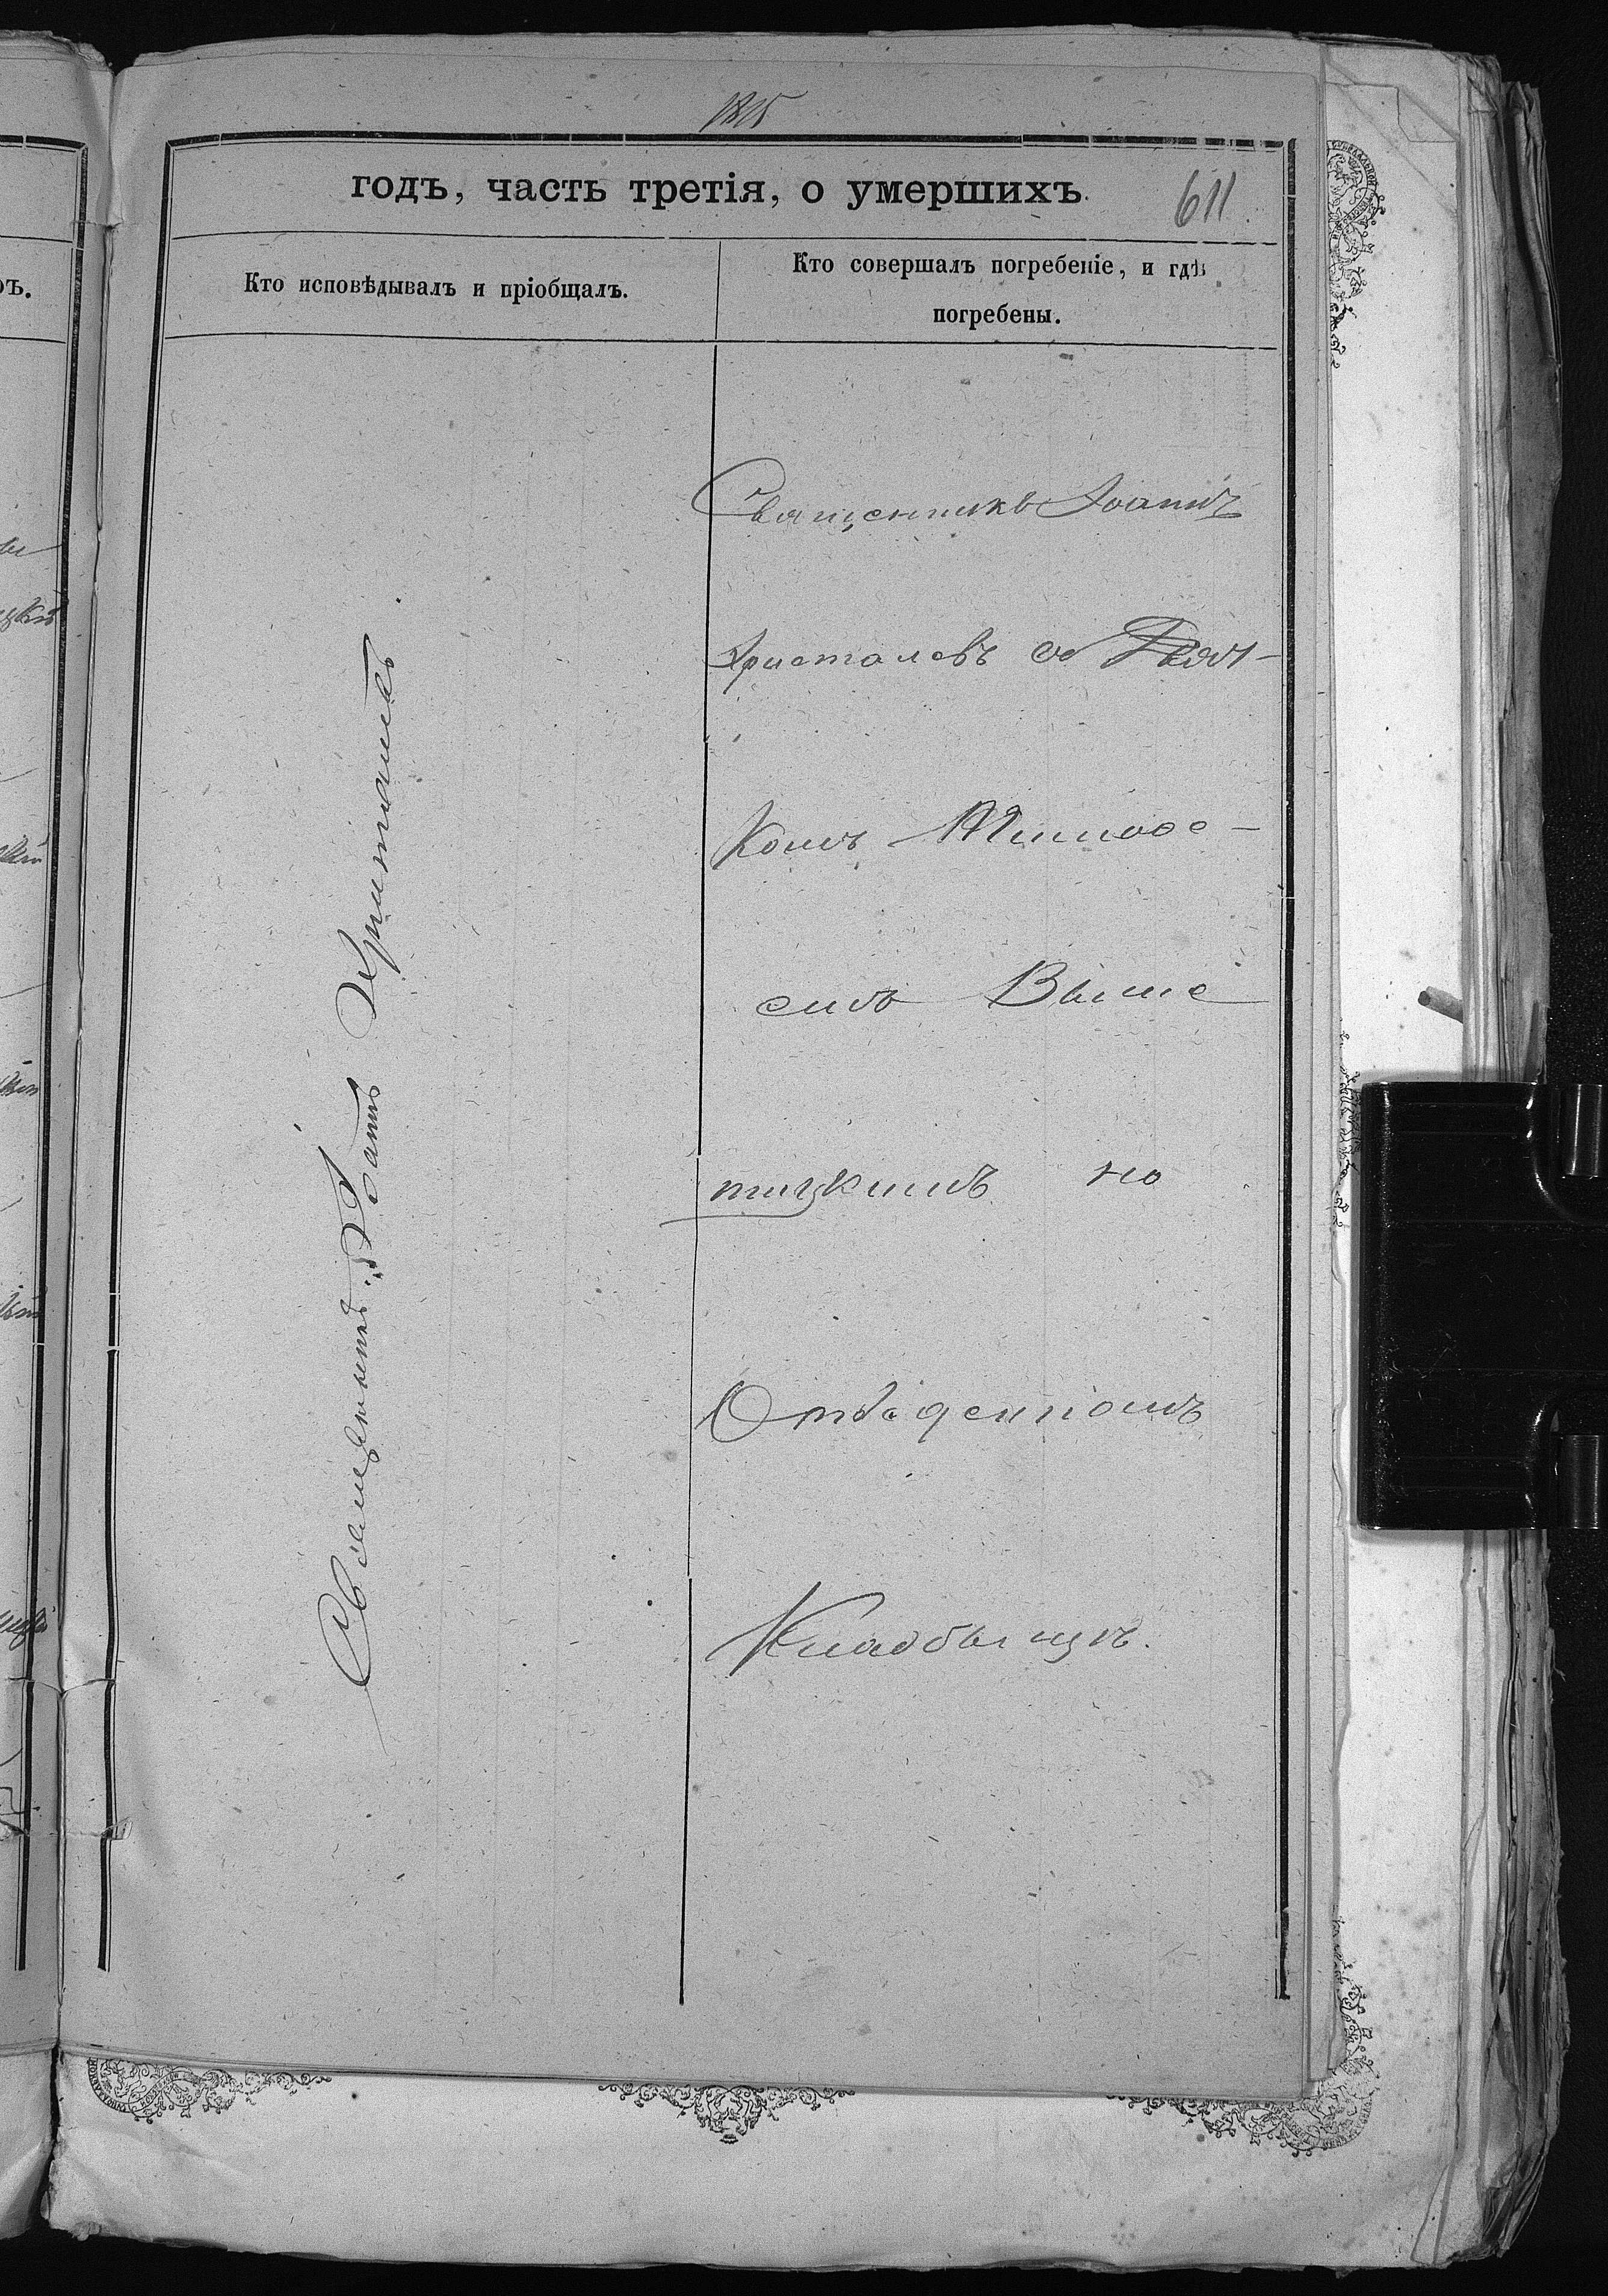 годъ, часть третія, о умершихъ.
611
Кто исповѣдывалъ и пріобщалъ.
Кто совершалъ погребеніе, и гдѣ
погребены.
Священникъ Іоаннъ Христалевъ
Священникъ Іоаннъ
Христалевъ съ
комъ Тимоѳе-
емъ Выше
тицкимъ на
Отведенномъ
Кладбыщѣ.